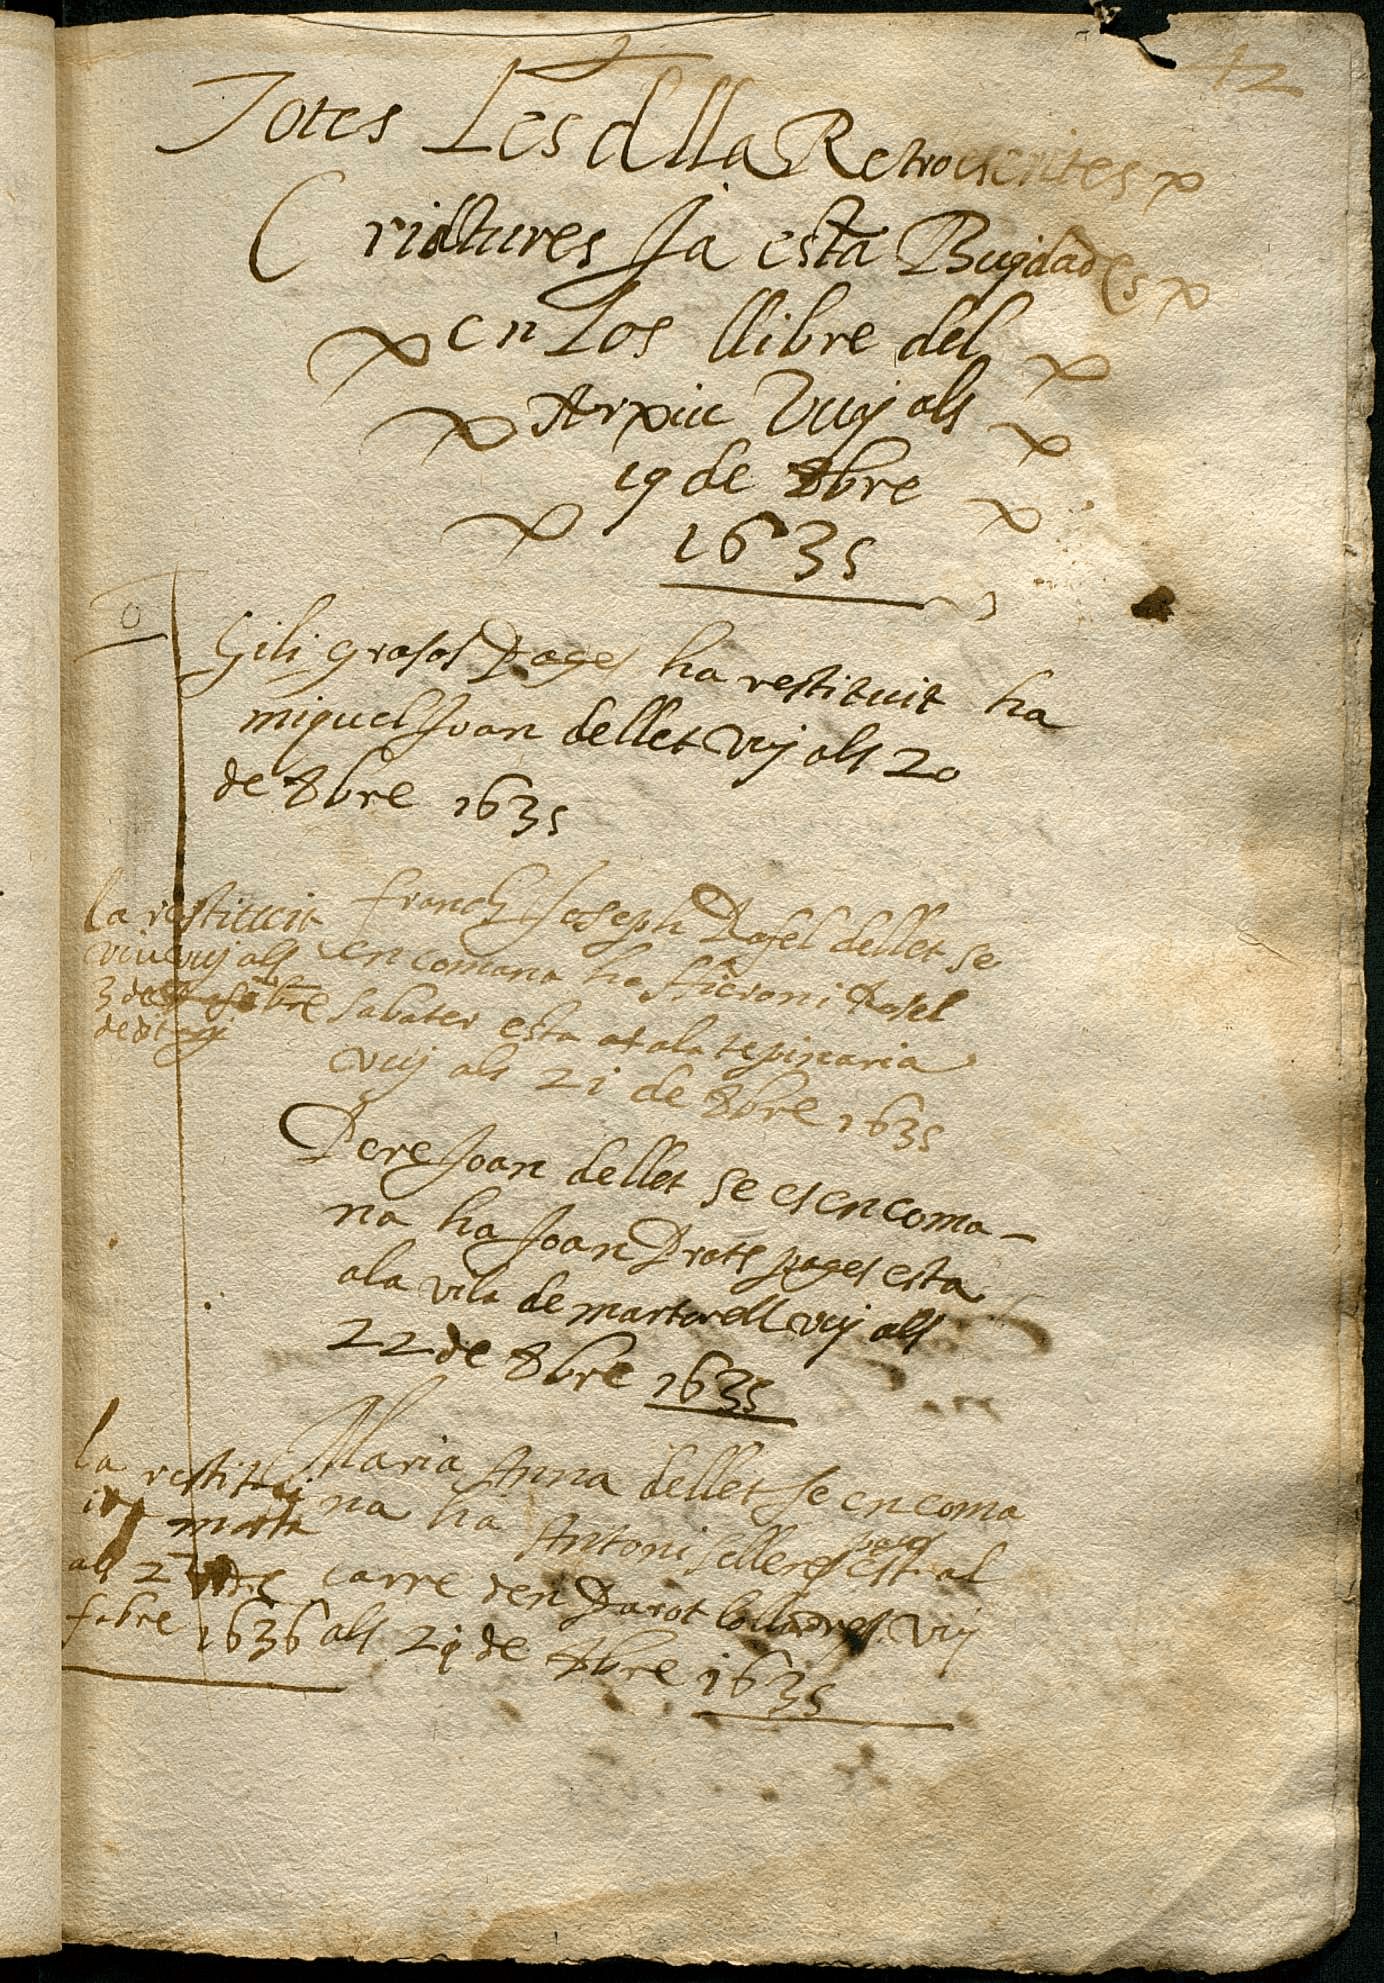 42
Totes Les dlla Retroescrites
Criatures Ja esta Bujdades
en Los llibre del
Arxiu Vuy als
19 de 8bre
1635
Gili grasos Pages ha restituit ha
miquel Joan dellet vuy als 20
de 8bre 1635
la restituit
viu vuy als
3 de
franch Joseph Rosel dellet se
encomana ha Hieroni Rosel
sabater esta a la tepinaria
vuy als 21 de 8bre 1635
Pere Joan dellet se es encoma-
na ha Joan Prats pages esta
a la vila de martorell vuy als
22 de 8bre 1635
la restituj
morta
als 2 de
febre 1636
Maria Anna dellet se encoma
na ha Antoni selleres pages est al
carre den Parot vuy
als 29 de 8bre 1635